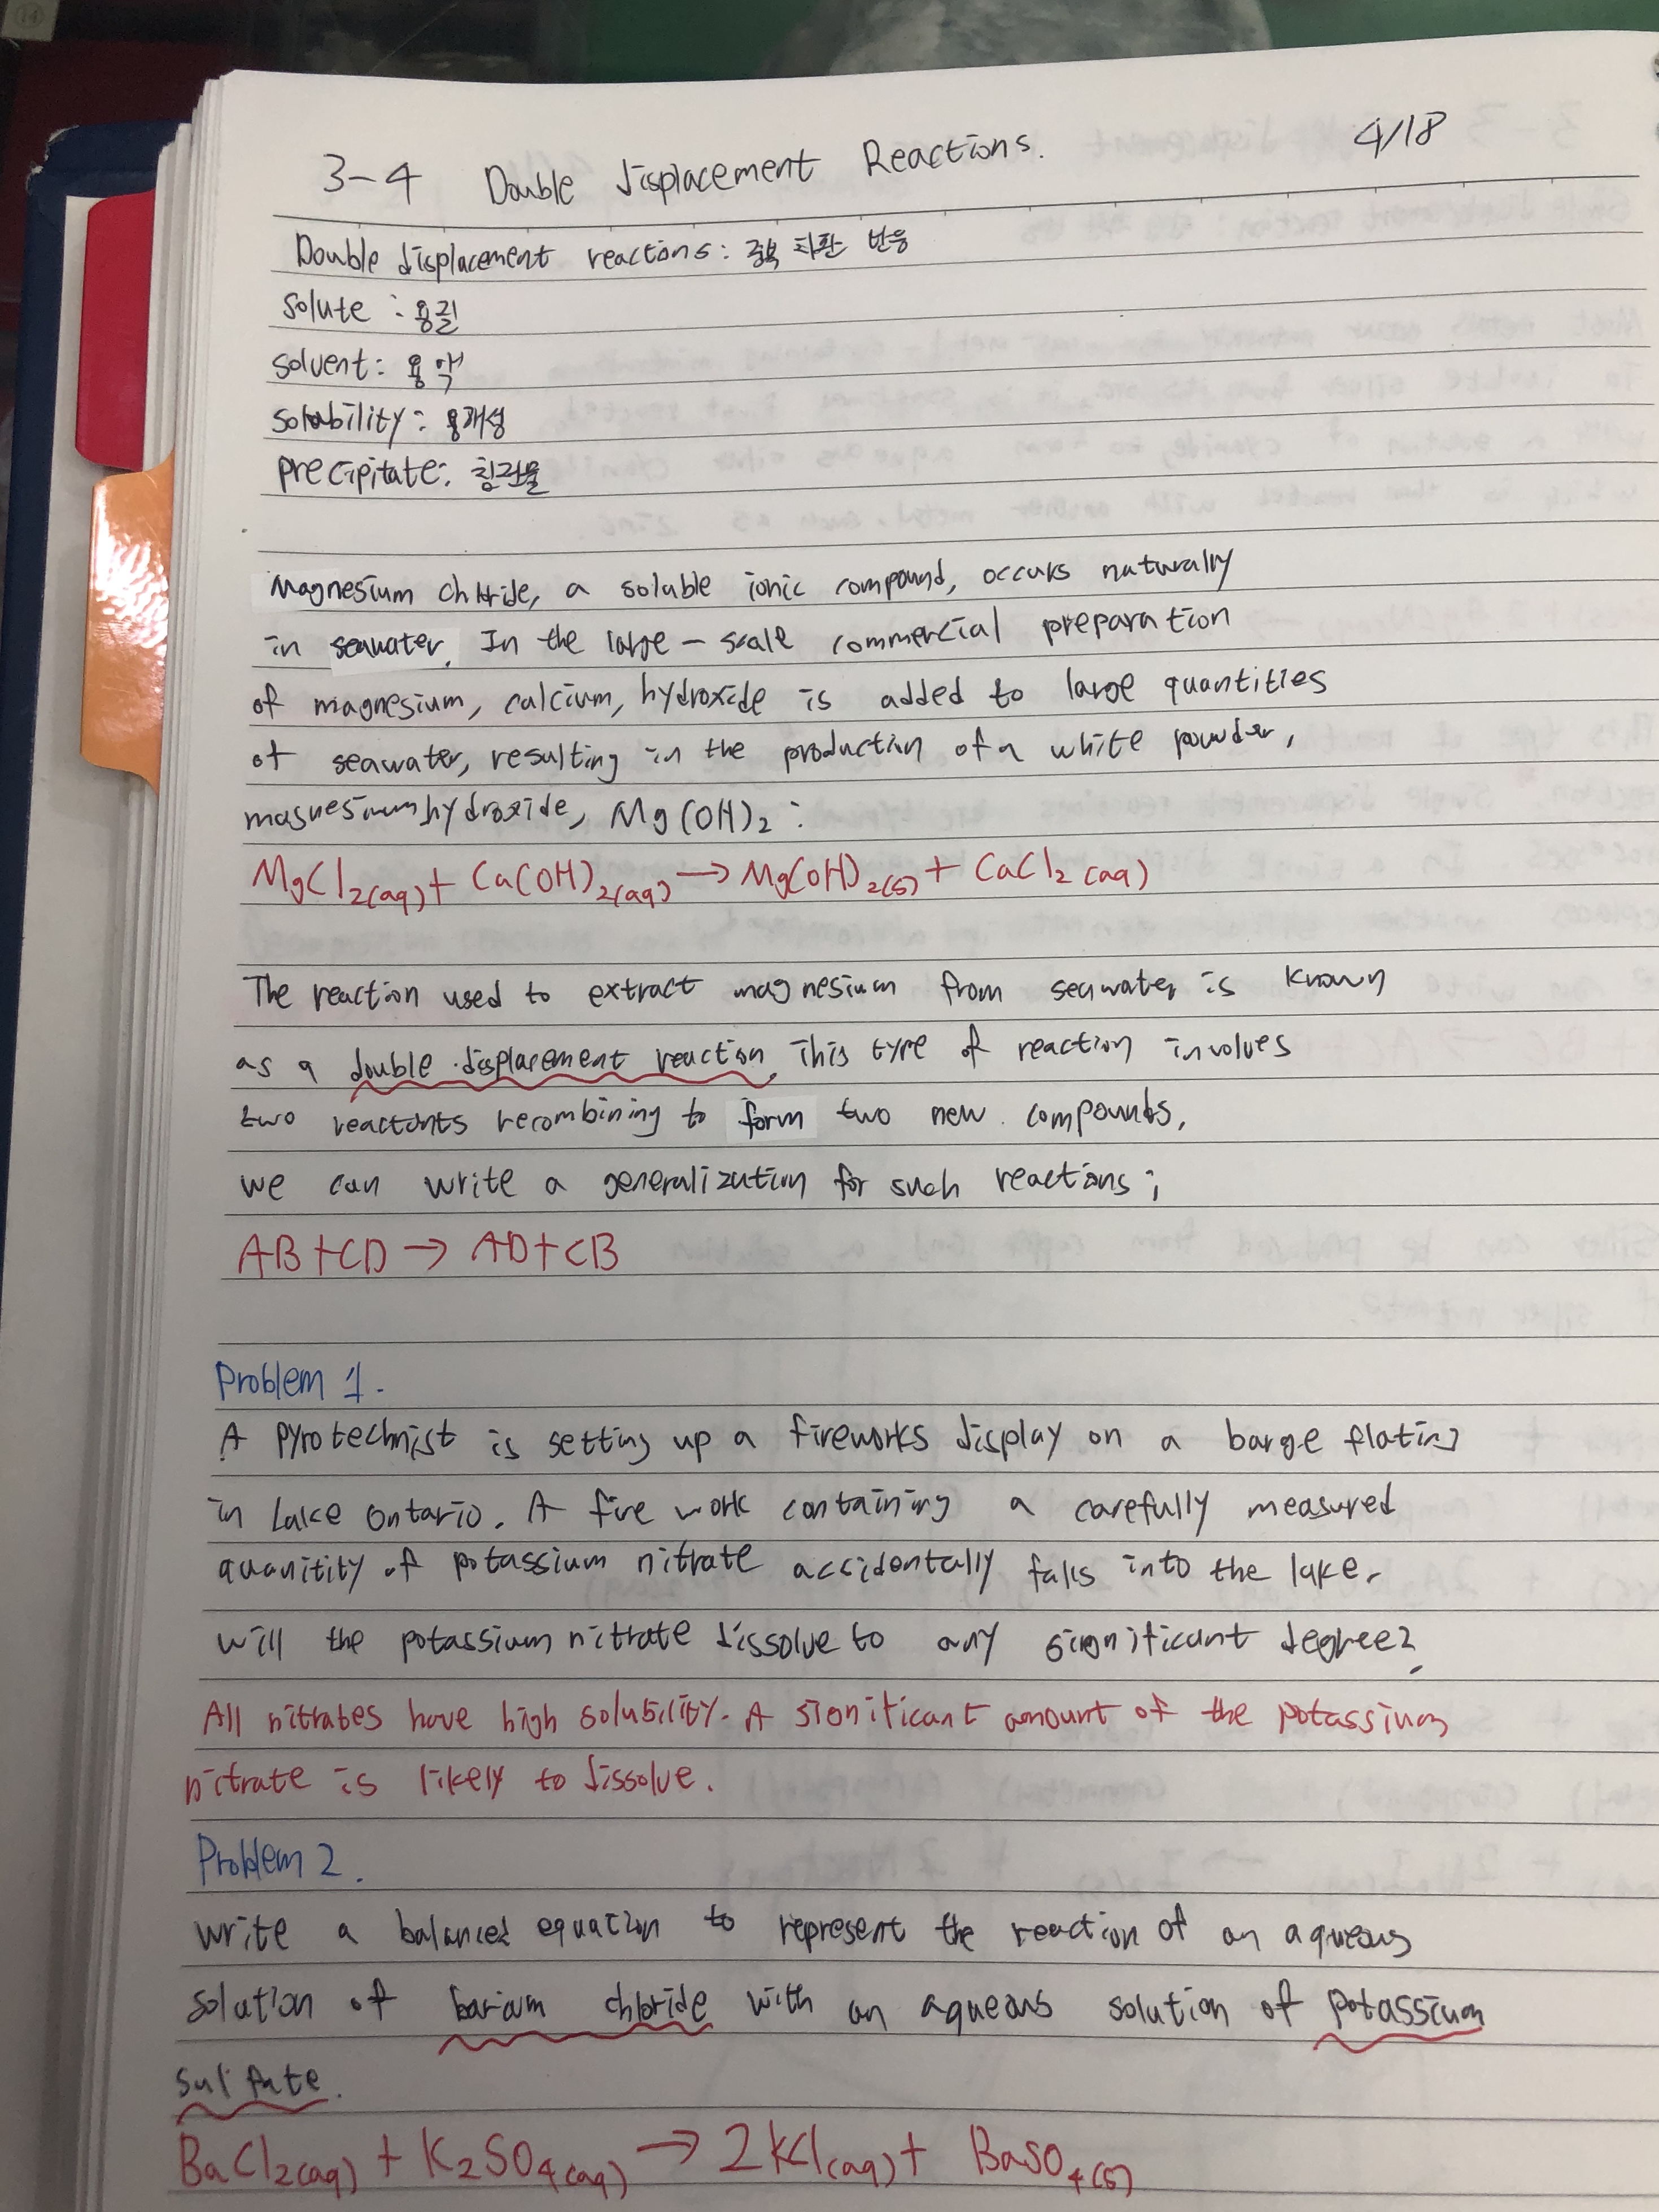 3-4 Double displacement Reactions. 4/18
Double displacement reactions: 중복 치환 반응
Solute : 용질
Solvent: 용액
Solubility: 용해성
Precipitate: 침전물
Magnesium chloride, a soluble ionic compound, occurs naturally
in seawater. In the large-scale commercial preparation
of magnesium, calcium, hydroxide is added to large quantities
of seawater, resulting in the production of a white powder,
magnesium hydroxide, Mg(OH)2:
MgCl2(aq) + Ca(OH)2(aq) → Mg(OH)2(s) + CaCl2(aq)
The reaction used to extract magnesium from seawater is known
as a double displacement reaction. This type of reaction involves
two reactants recombining to form two new compounds,
we can write a generalization for such reactions;
AB+CD → AD+CB
Problem 1.
A pyrotechnist is setting up a fireworks display on a barge flating
in Lake Ontario. A fire work containing a carefully measured
quanitity of potassium nitrate accidentally falls into the lake.
will the potassium nitrate dissolve to any significant degree?
All nitrates have high solubility. A significant amount of the potassium
nitrate is likely to dissolve.
Problem 2.
write a balanced equation to represent the reaction of an aqueous
solution of barium chloride with an aqueous solution of potassium
sulfate.
BaCl2(aq) + K2SO4(aq) → 2KCl(aq) + BaSO4(s)